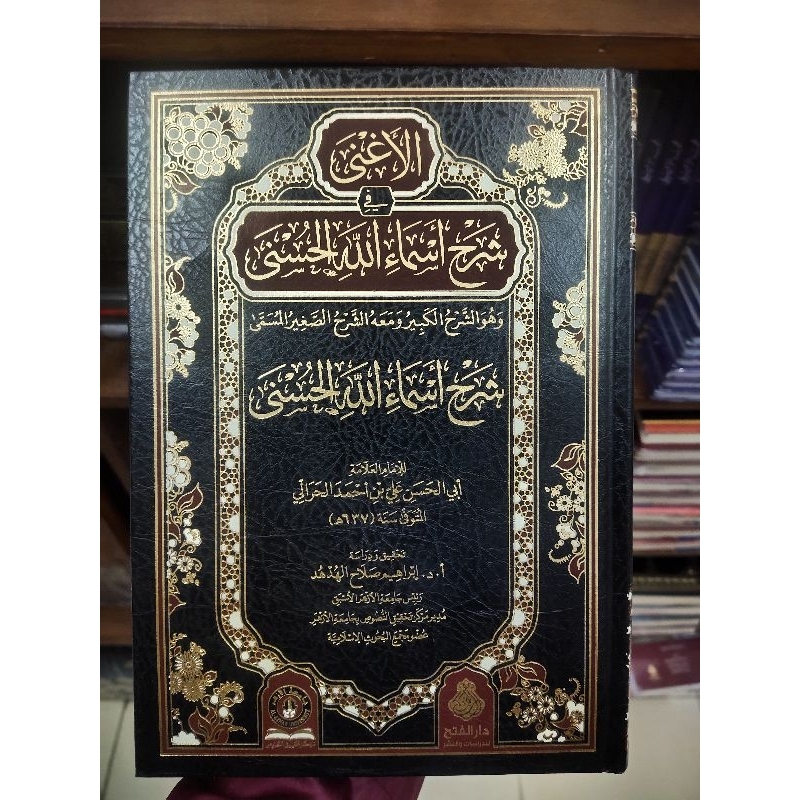 الأغنى
في
شرح أسماء الله الحسنى
وهو الشرح الكبير ومعه الشرح الصغير المسمى
شرح أسماء الله الحسنى
للإمام العلامة
أبي الحسن علي بن أحمد الحرالي
المتوفى سنة (٦٣٧هـ)
تحقيق ودراسة
أ.د. إبراهيم صلاح الهدهد
رئيس جامعة الأزهر الأسبق
مدير مركز تحقيق النصوص بجامعة الأزهر
عضو مجمع البحوث الإسلامية
دار الفتح
للدراسات والنشر